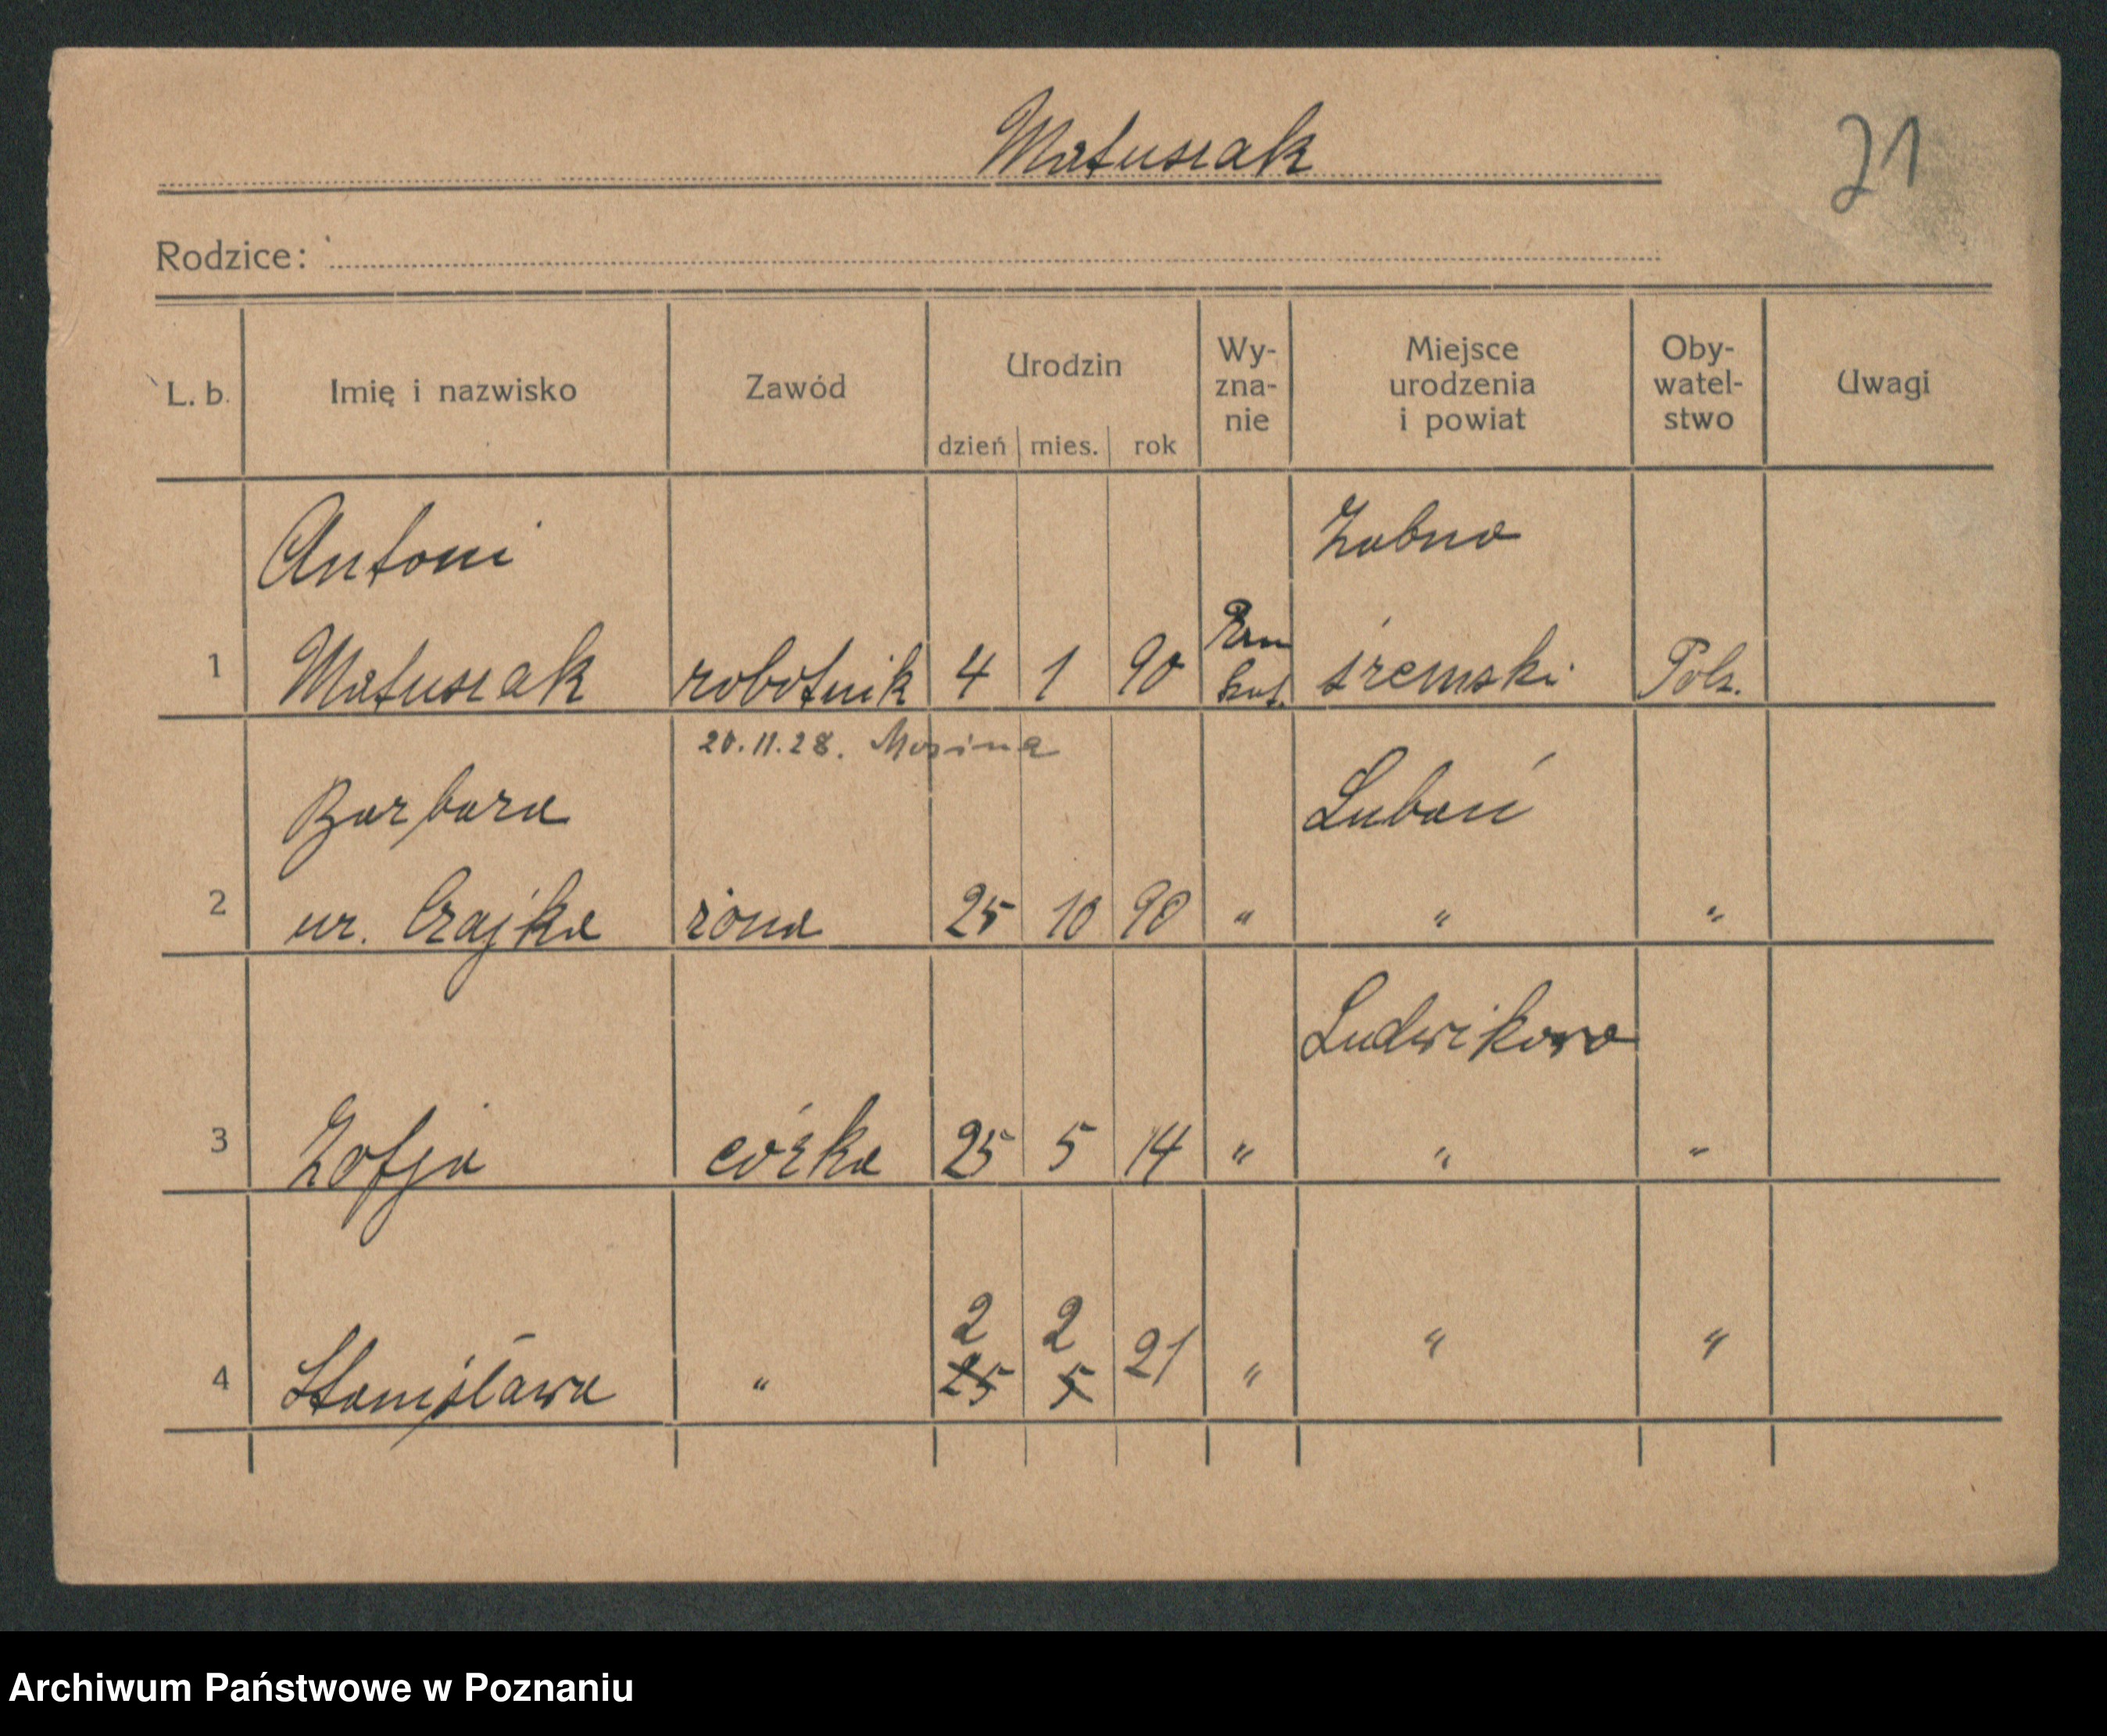 Matusiak
21
Rodzice:
L. b. Imię i nazwisko Zawód Urodzin dzień mies. rok Wy-zna-nie Miejsce urodzenia i powiat Oby-watel-stwo Uwagi
Antoni Żabno
1 Matusiak robotnik 4 1 90 Rzm kat. śremski Pols.
20.11.28. Mosina
Barbara Lubań
2 ur. Czajka żona 25 10 90 " " "
Ludwikowo
3 Zofja córka 25 5 14 " " "
2 2
4 Stanisława " 25 5 21 " " "
Archiwum Państwowe w Poznaniu